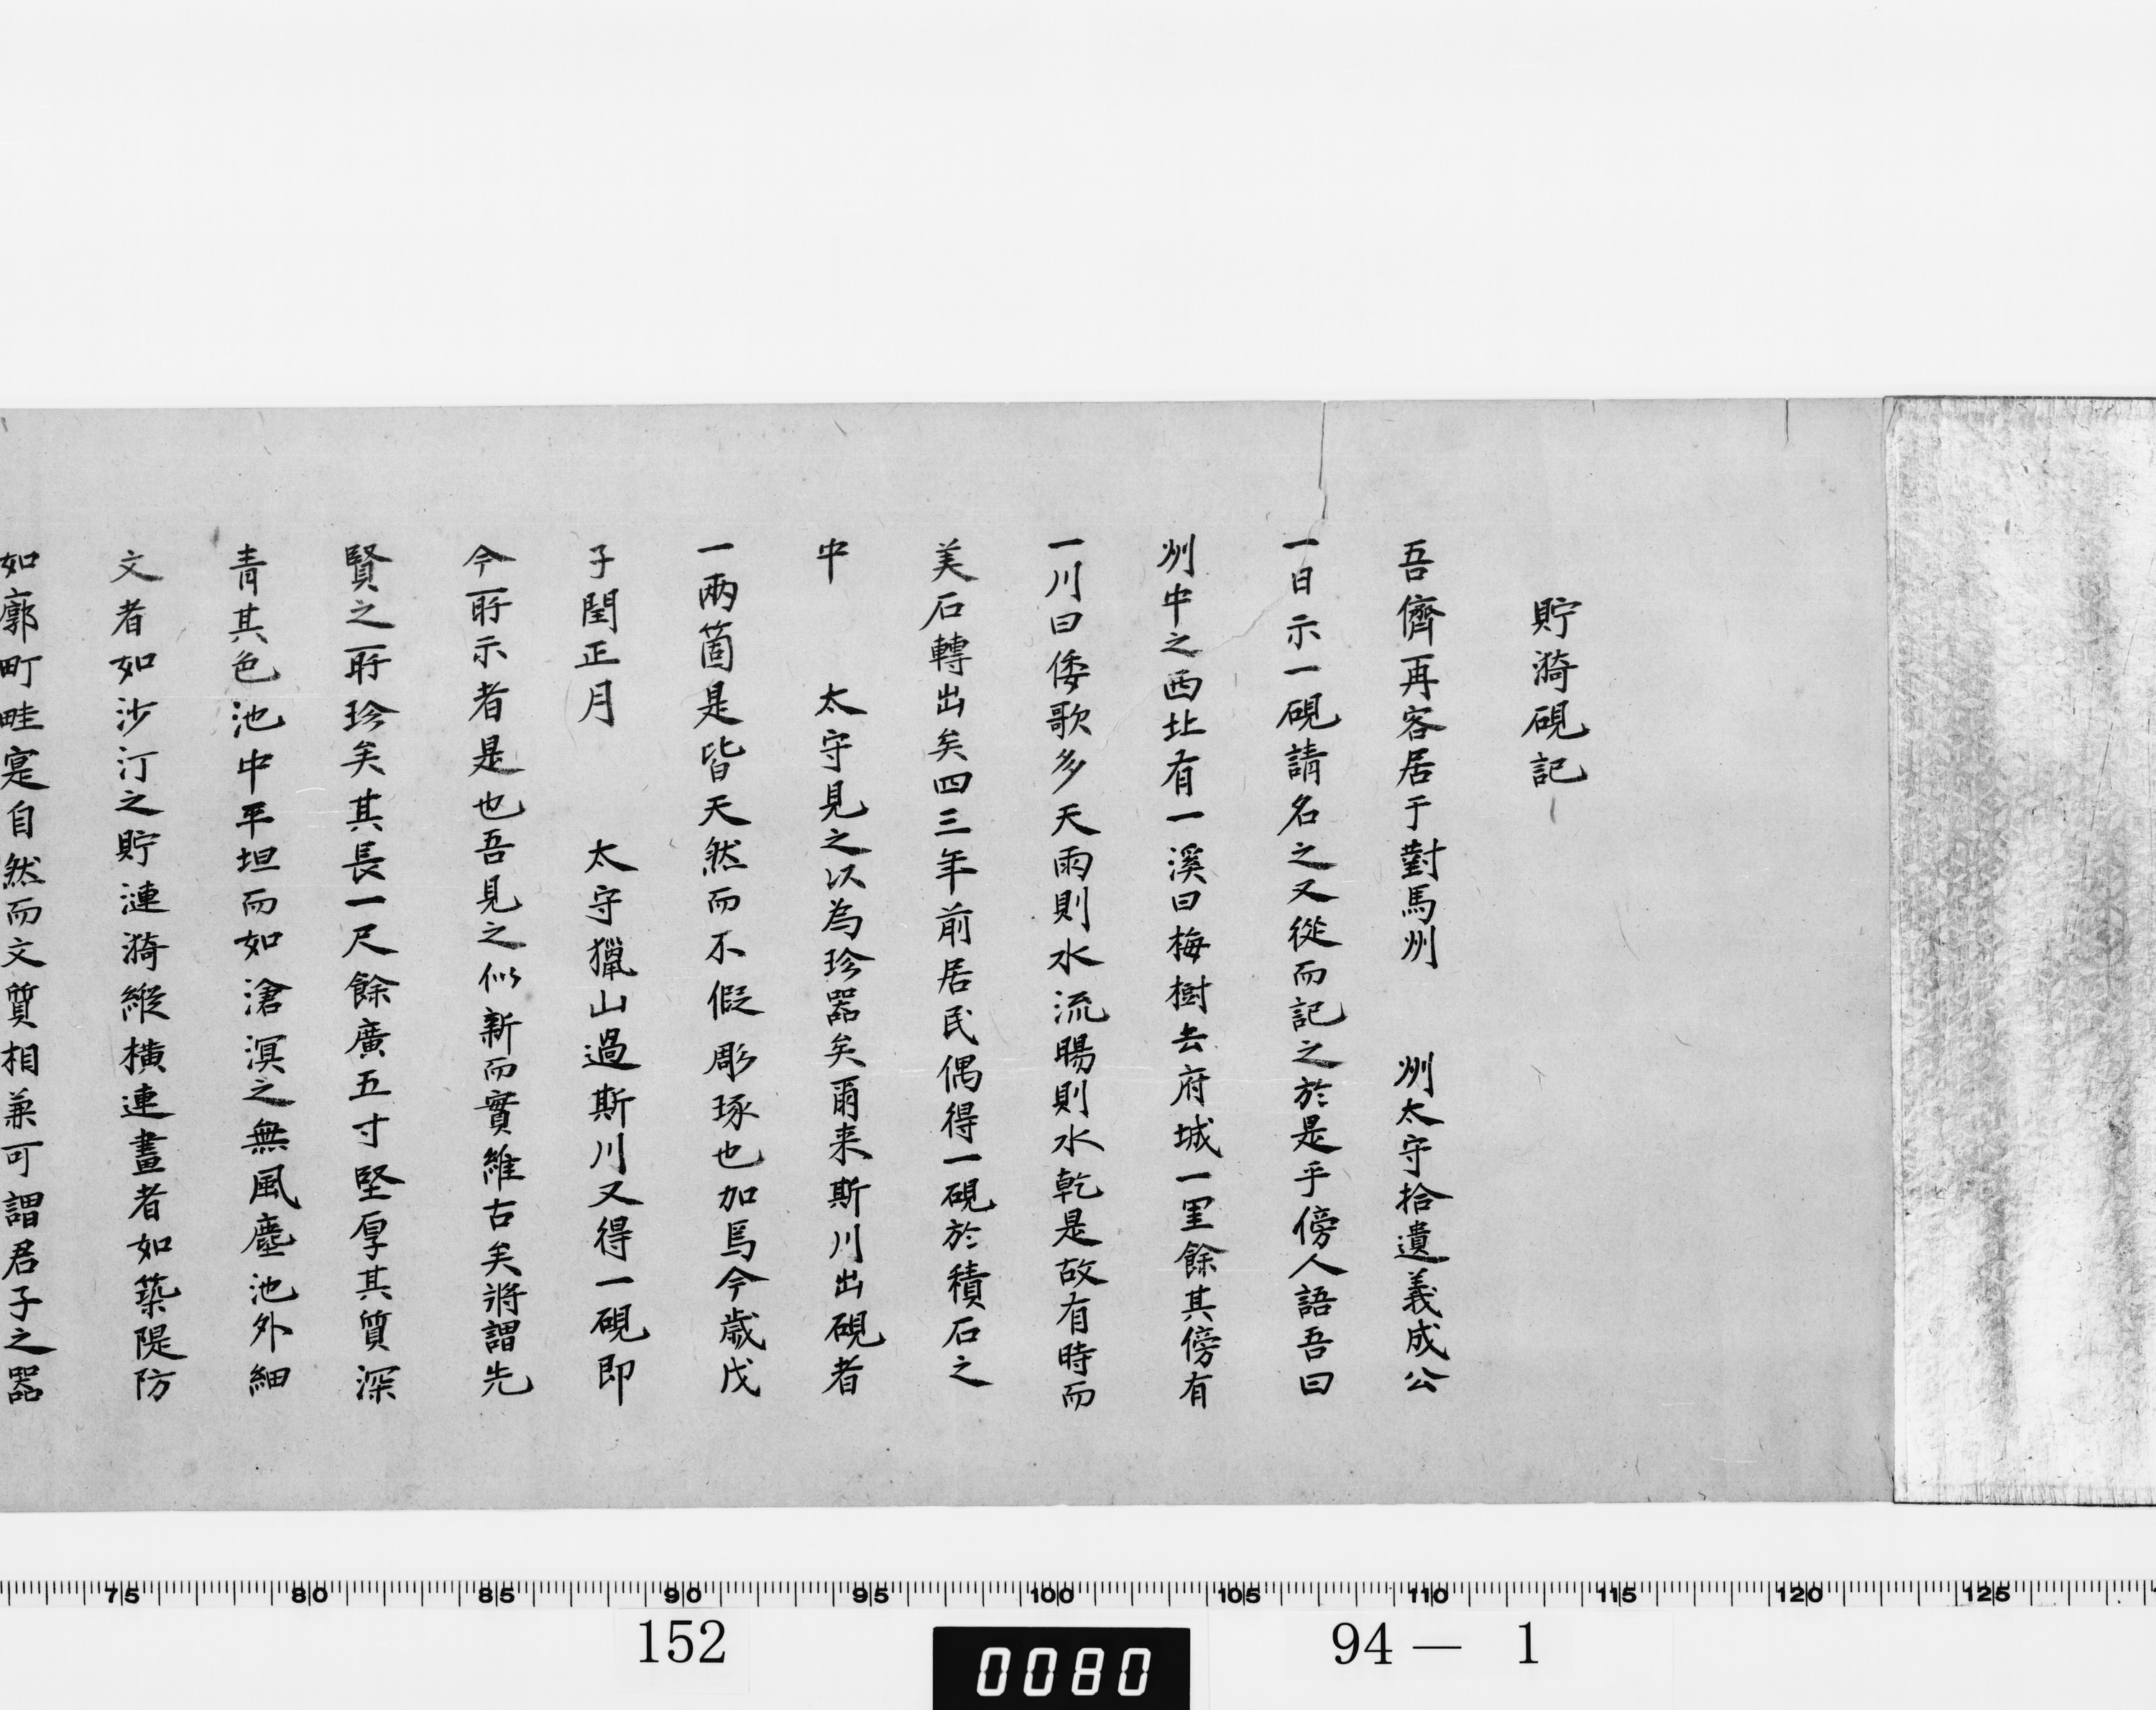 貯漪硯記
吾儕再客居于對馬州　州太守拾遺義成公
一日示一硯請名之又從而記之於是乎傍人語吾曰
州中之西北有一溪曰梅樹去府城一里餘其傍有
一川曰倭歌多天雨則水流暘則水乾是故有時而
美石轉出矣四三年前居民偶得一硯於積石之
中　太守見之以為珍器矣爾来斯川出硯者
一兩箇是皆天然而不假彫琢也加焉今歲戊
子閏正月　太守獵山過斯川又得一硯即
今所示者是也吾見之似新而實維古矣將謂先
賢之所珍矣其長一尺餘廣五寸堅厚其質深
青其色池中平坦而如滄溟之無風塵池外細
文者如沙汀之貯漣漪縱橫連畫者如築隄防
如廓町畦寔自然而文質相兼可謂君子之器
75 80 85 90 95 100 105 110 115 120 125
152 0080 94－1